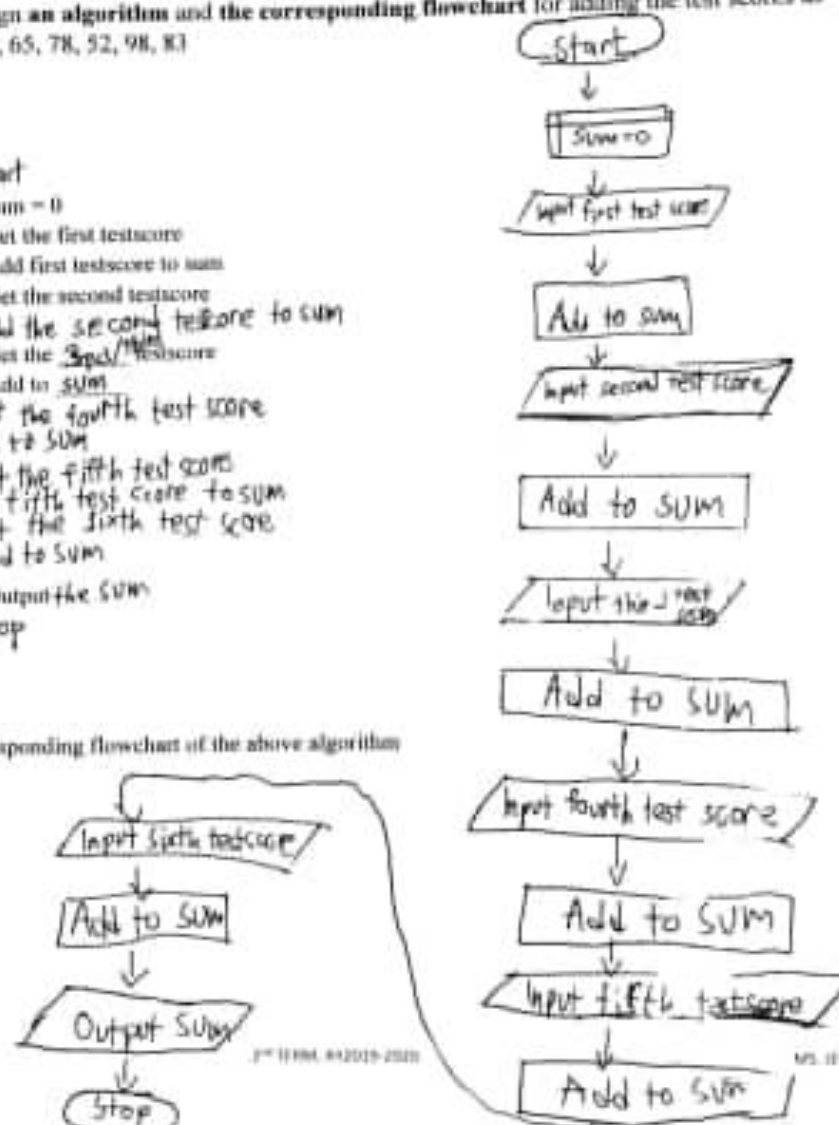 gn an algorithm and the corresponding flowchart for adding the test scores as
, 65, 78, 52, 98, 83
art
um = 0
et the first testscore
dd first testscore to sum
et the second testscore
d the second testscore to sum
et the testscore
dd to sum
t the fourth test score
to sum
t the fifth test score
fifth test score to sum
t the sixth test score
d to sum
utput the sum
op
sponding flowchart of the above algorithm
Start
Sum=0
Input first test score
Add to sum
Input second test score
Add to sum
Input third test
Add to sum
Input fourth test score
Add to sum
Input fifth testscore
Add to sum
Input sixth testscore
Add to sum
Output sum
Stop
2ND TERM, AY2019-2020
MS.